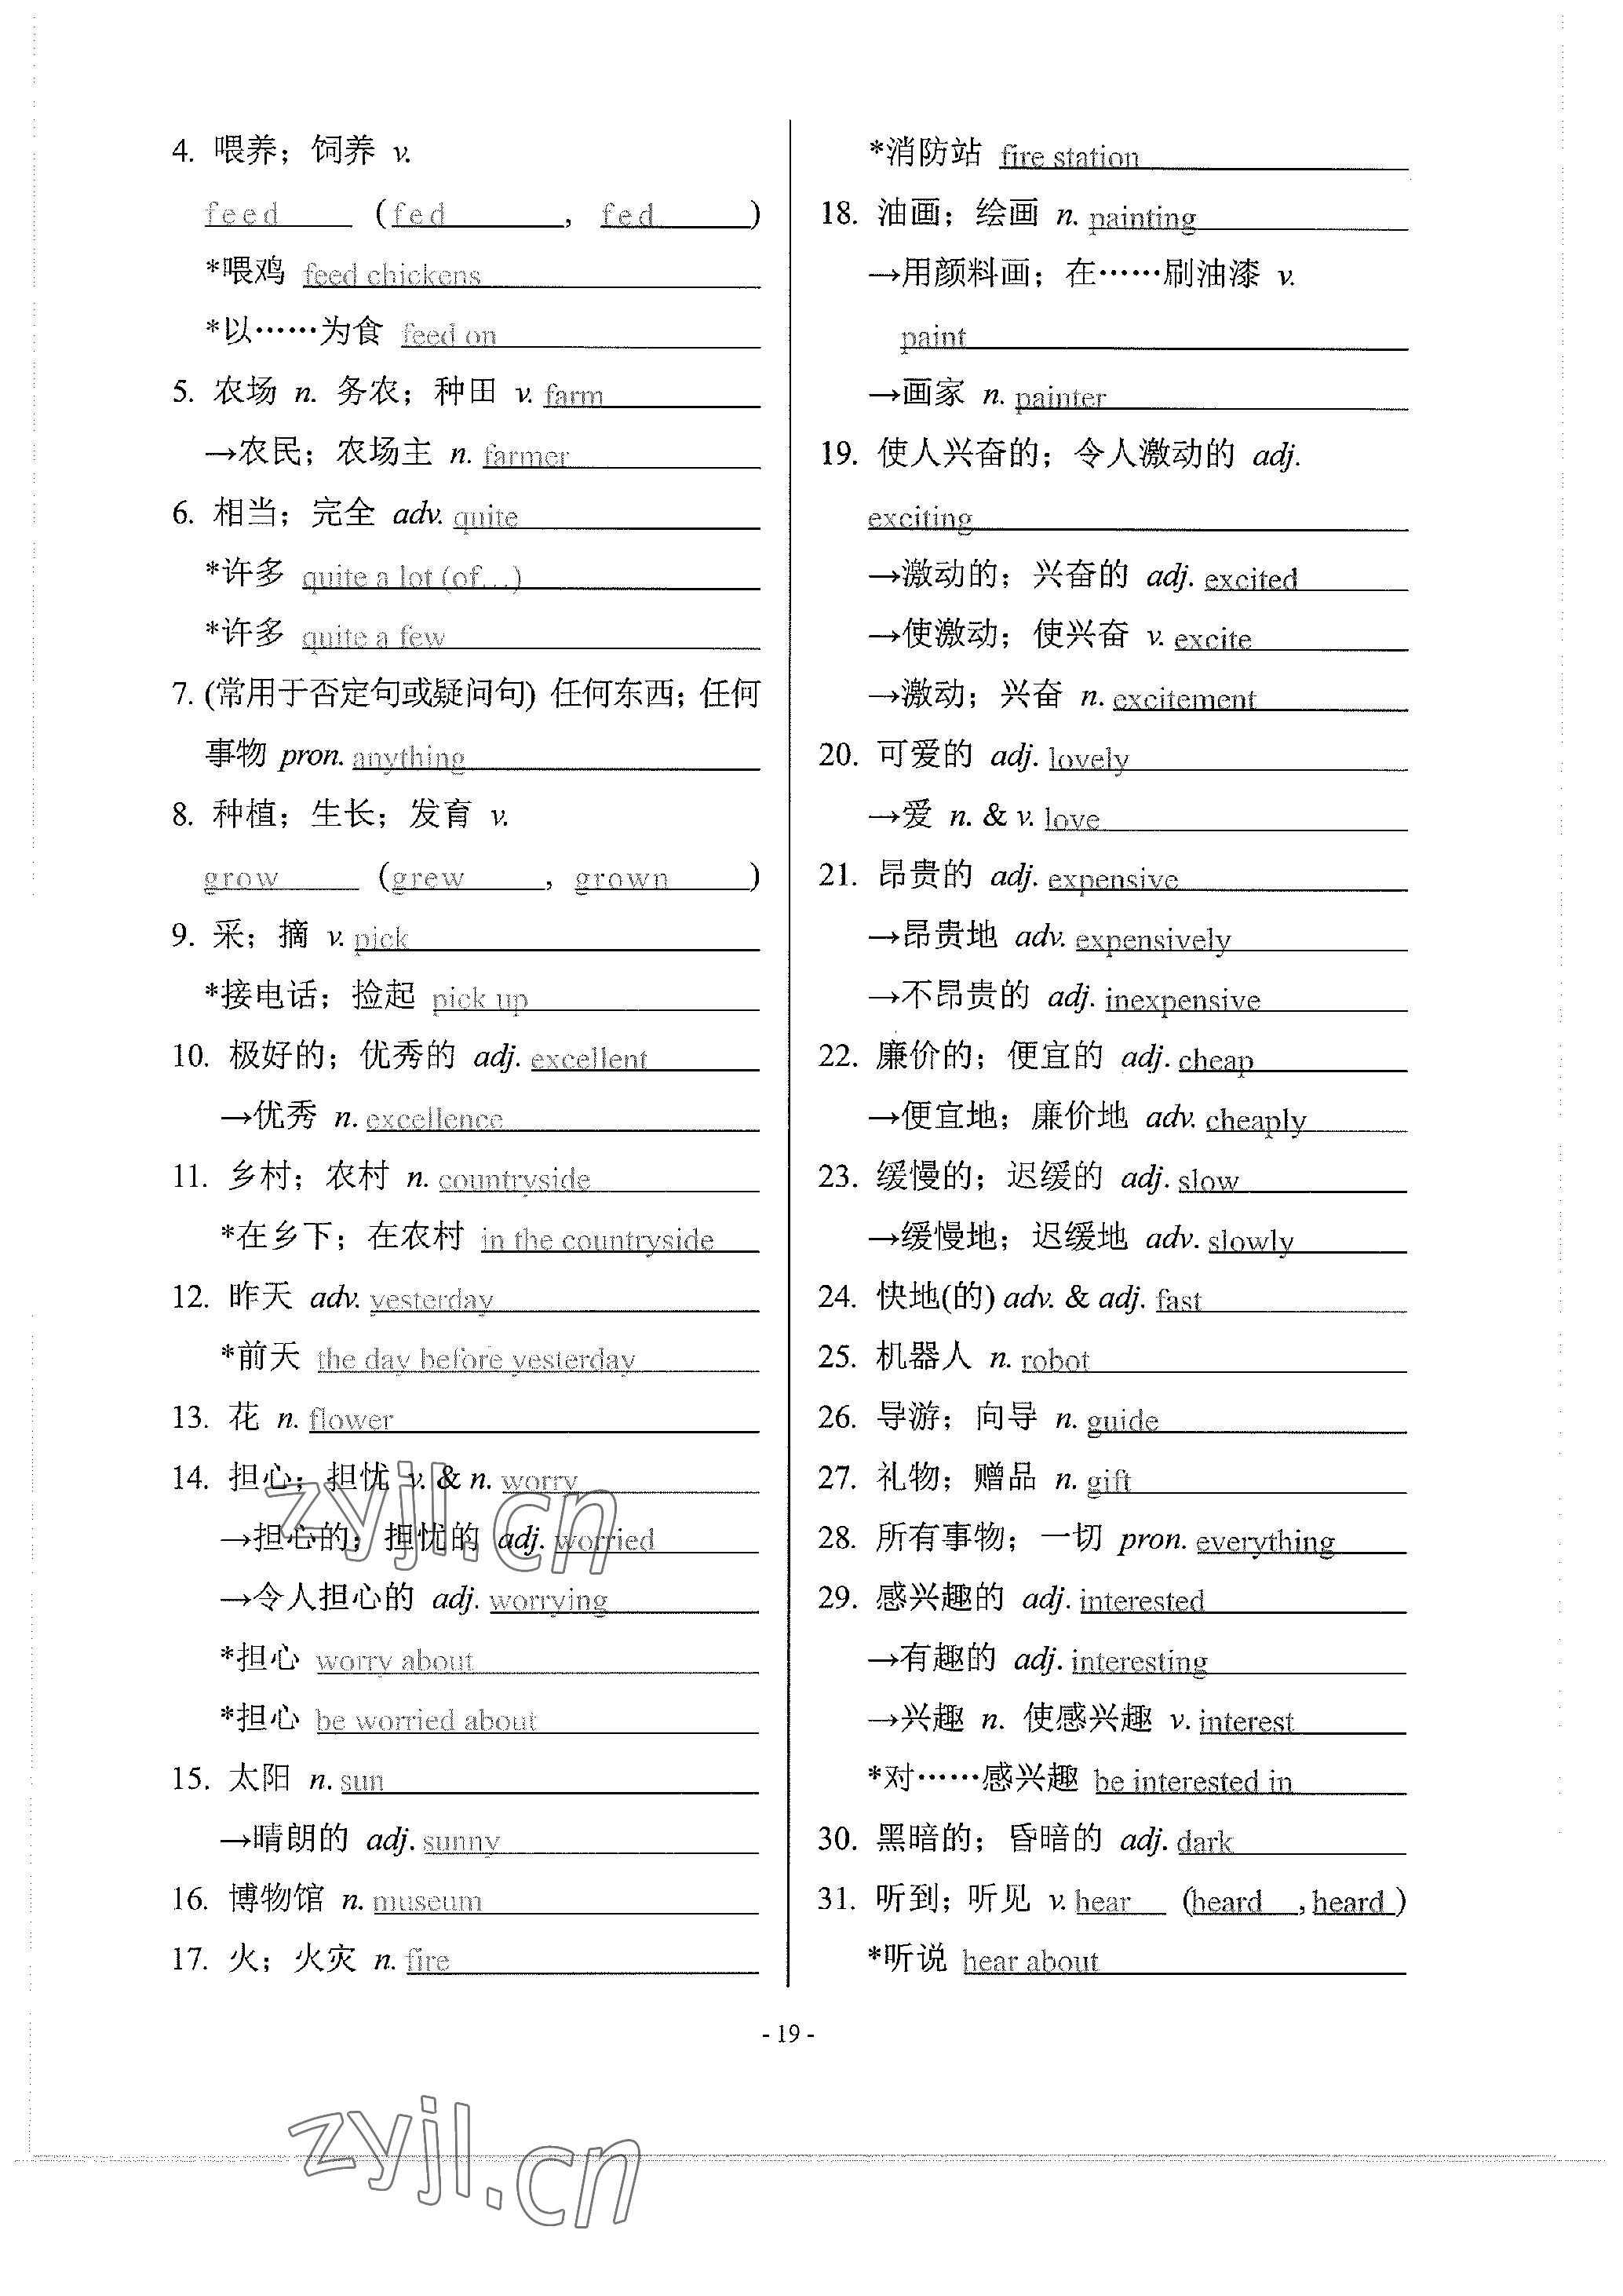 4. 喂养；饲养 v.
feed (fed, fed)
*喂鸡 feed chickens
*以……为食 feed on
5. 农场 n. 务农；种田 v. farm
→农民；农场主 n. farmer
6. 相当；完全 adv. quite
*许多 quite a lot (of…)
*许多 quite a few
7. (常用于否定句或疑问句) 任何东西；任何
事物 pron. anything
8. 种植；生长；发育 v.
grow (grew, grown)
9. 采；摘 v. pick
*接电话；捡起 pick up
10. 极好的；优秀的 adj. excellent
→优秀 n. excellence
11. 乡村；农村 n. countryside
*在乡下；在农村 in the countryside
12. 昨天 adv. yesterday
*前天 the day before yesterday
13. 花 n. flower
14. 担心；担忧 v. & n. worry
→担心的；担忧的 adj. worried
→令人担心的 adj. worrying
*担心 worry about
*担心 be worried about
15. 太阳 n. sun
→晴朗的 adj. sunny
16. 博物馆 n. museum
17. 火；火灾 n. fire
*消防站 fire station
18. 油画；绘画 n. painting
→用颜料画；在……刷油漆 v.
paint
→画家 n. painter
19. 使人兴奋的；令人激动的 adj.
exciting
→激动的；兴奋的 adj. excited
→使激动；使兴奋 v. excite
→激动；兴奋 n. excitement
20. 可爱的 adj. lovely
→爱 n. & v. love
21. 昂贵的 adj. expensive
→昂贵地 adv. expensively
→不昂贵的 adj. inexpensive
22. 廉价的；便宜的 adj. cheap
→便宜地；廉价地 adv. cheaply
23. 缓慢的；迟缓的 adj. slow
→缓慢地；迟缓地 adv. slowly
24. 快地(的) adv. & adj. fast
25. 机器人 n. robot
26. 导游；向导 n. guide
27. 礼物；赠品 n. gift
28. 所有事物；一切 pron. everything
29. 感兴趣的 adj. interested
→有趣的 adj. interesting
→兴趣 n. 使感兴趣 v. interest
*对……感兴趣 be interested in
30. 黑暗的；昏暗的 adj. dark
31. 听到；听见 v. hear (heard, heard)
*听说 hear about
- 19 -
zyjl.cn
zyjl.cn